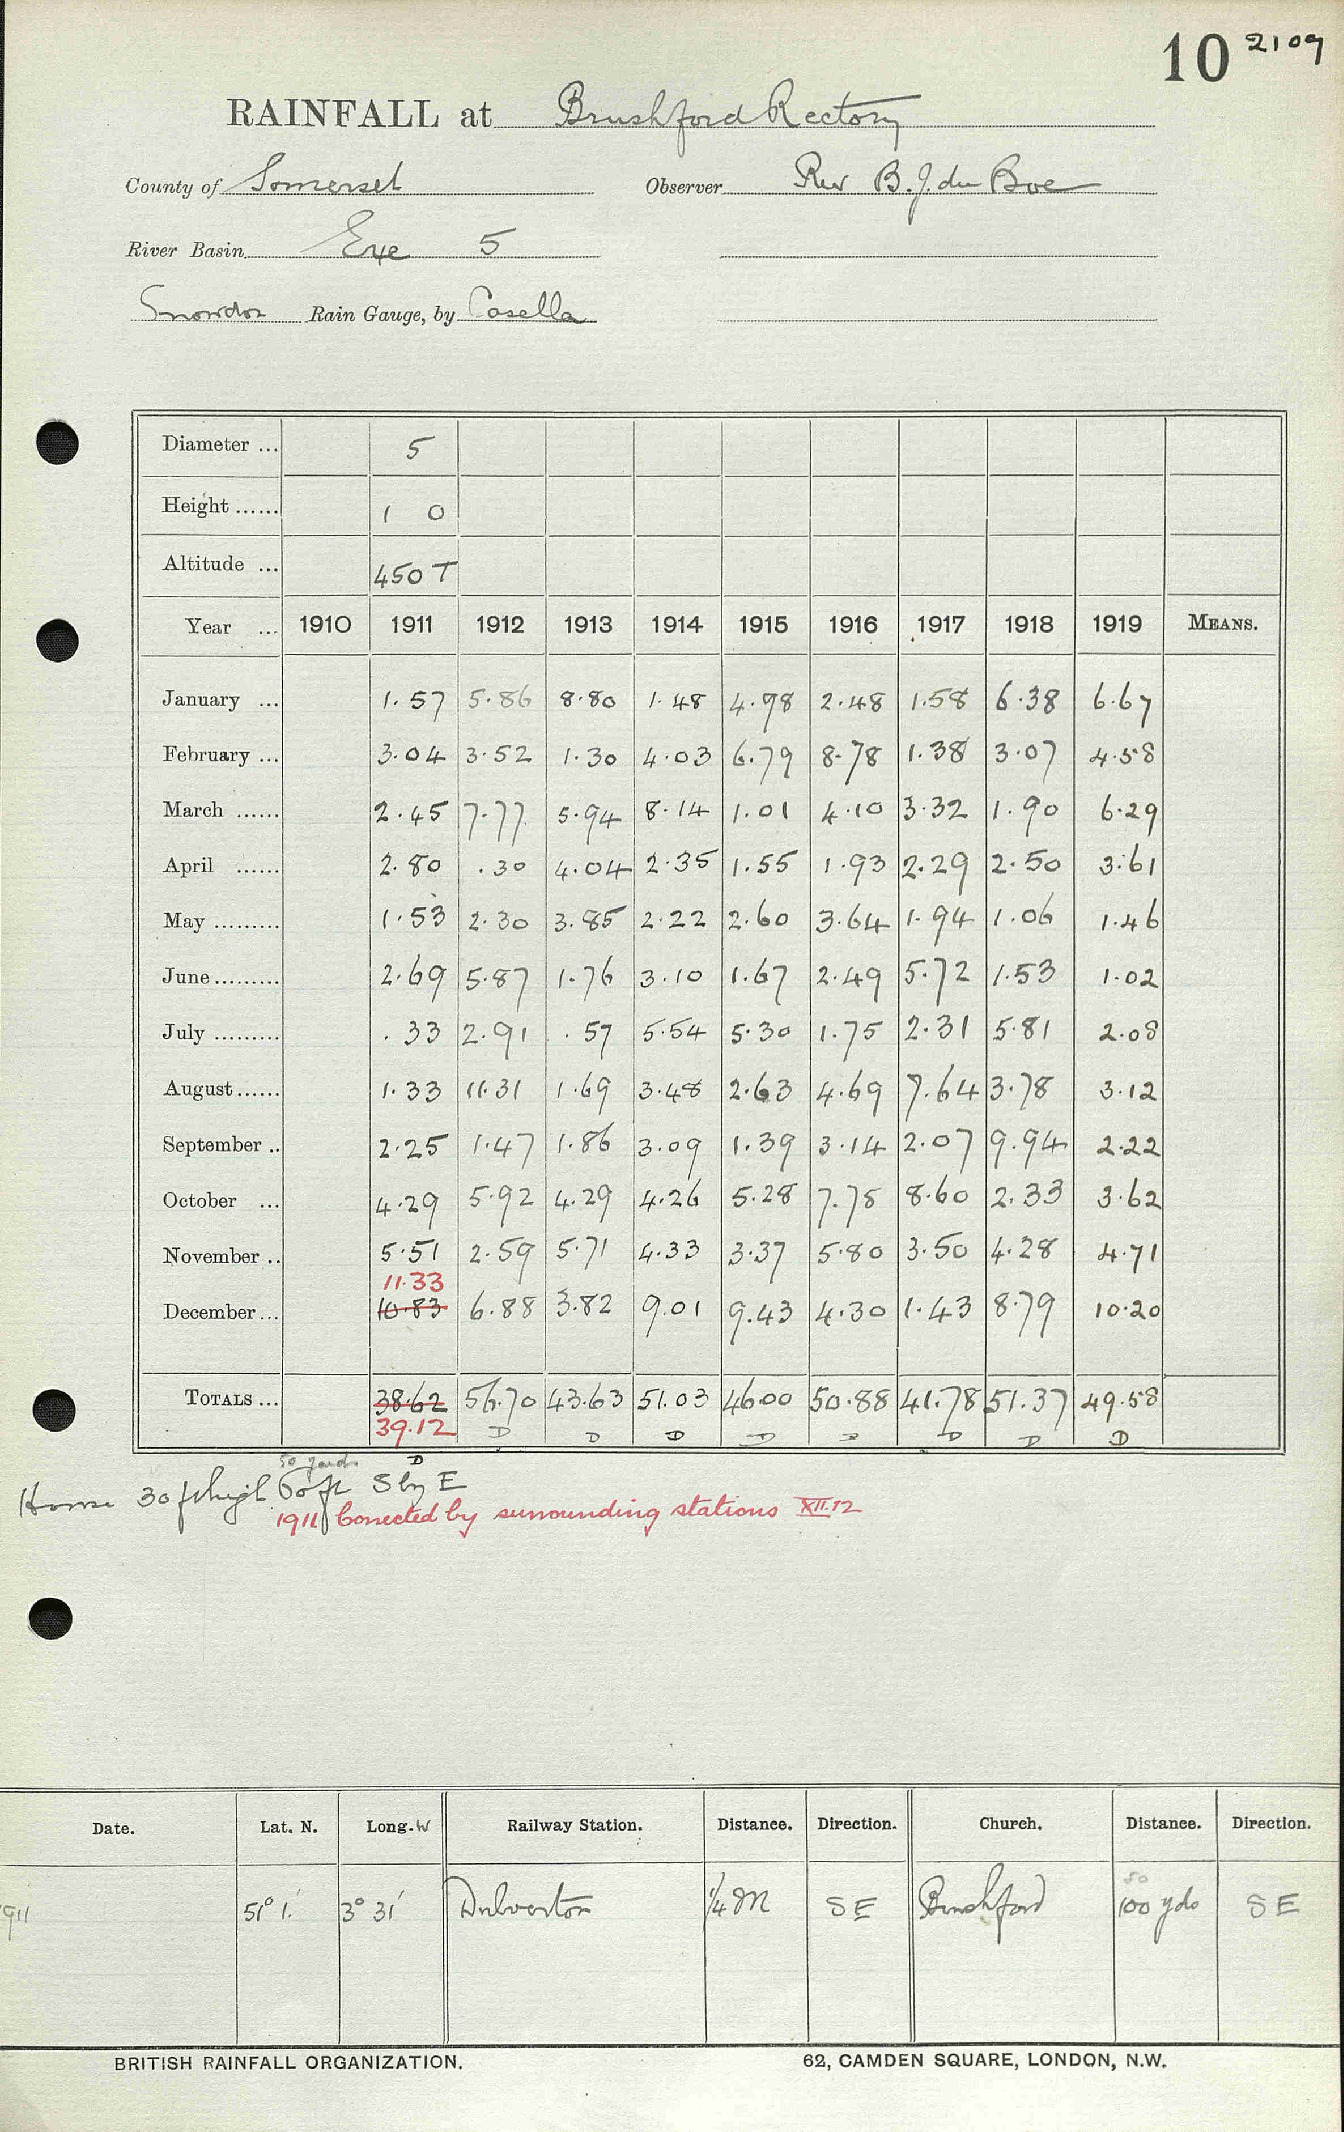 10 2109
RAINFALL at Brushford Rectory
County of Somerset Observer Rev B. J. du Boe
River Basin Exe 5
Snowdon Rain Gauge, by Casella
Diameter ... 5
Height ...... 1 0
Altitude ... 450 T
Year ... 1910 1911 1912 1913 1914 1915 1916 1917 1918 1919 MEANS.
January ... 1.57 5.86 8.80 1.48 4.98 2.48 1.58 6.38 6.67
February ... 3.04 3.52 1.30 4.03 6.79 8.78 1.38 3.07 4.58
March ...... 2.45 7.77 5.94 8.14 1.01 4.10 3.32 1.90 6.29
April ...... 2.80 .30 4.04 2.35 1.55 1.93 2.29 2.50 3.61
May ......... 1.53 2.30 3.85 2.22 2.60 3.64 1.94 1.06 1.46
June......... 2.69 5.87 1.76 3.10 1.67 2.49 5.72 1.53 1.02
July ......... .33 2.91 .57 5.54 5.30 1.75 2.31 5.81 2.08
August...... 1.33 11.31 1.69 3.48 2.63 4.69 7.64 3.78 3.12
September .. 2.25 1.47 1.86 3.09 1.39 3.14 2.07 9.94 2.22
October ... 4.29 5.92 4.29 4.26 5.28 7.78 8.60 2.33 3.62
November .. 5.51 2.59 5.71 4.33 3.37 5.80 3.50 4.28 4.71
11.33
December... 10.83 6.88 3.82 9.01 9.43 4.30 1.43 8.79 10.20
TOTALS ... 38.62 56.70 43.63 51.03 46.00 50.88 41.78 51.37 49.58
39.12 D D D D D D D D
50 yards D
House 30 ft high 60 ft S by E
1911 Corrected by surrounding stations XII.12
Date. Lat. N. Long. W Railway Station. Distance. Direction. Church. Distance. Direction.
50
1911 51° 1' 3° 31' Dulverton 1/4 M SE Brushford 100 yds SE
BRITISH RAINFALL ORGANIZATION. 62, CAMDEN SQUARE, LONDON, N.W.